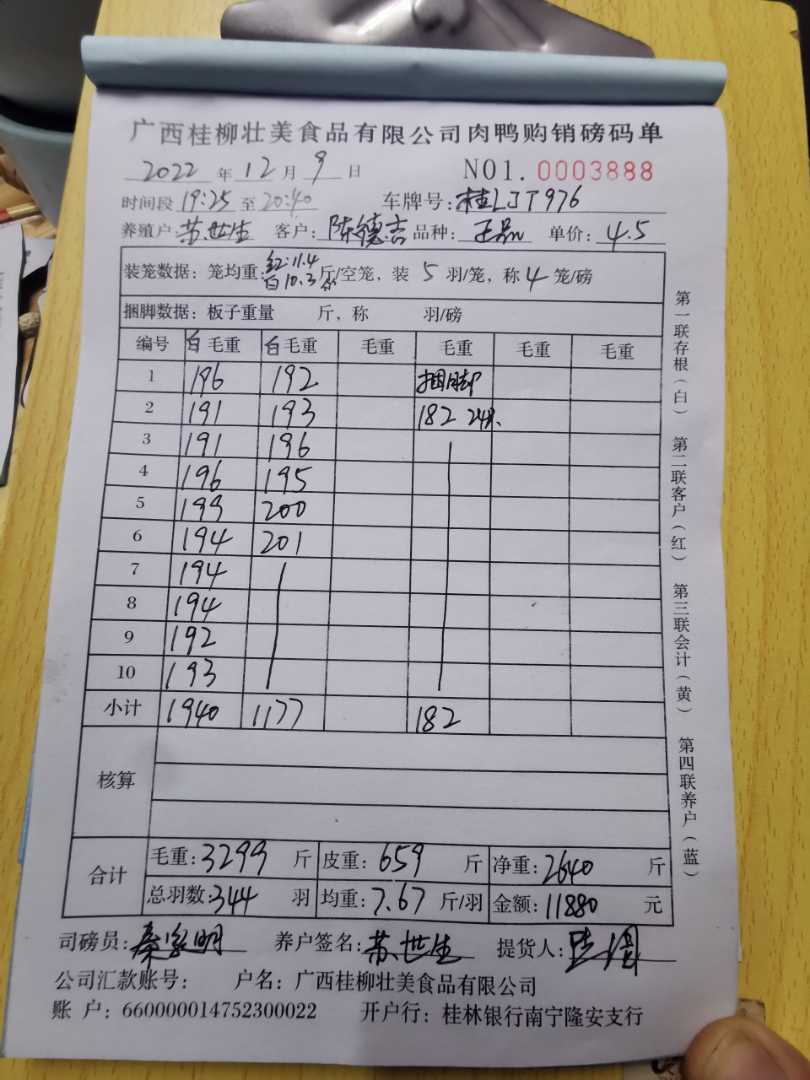 广西桂柳壮美食品有限公司肉鸭购销磅码单
2022 年 12 月 9 日 NO1. 0003888
时间段 19:25 至 20:40 车牌号: 桂LJT976
养殖户 苏世生 客户: 陈德吉 品种: 单价: 4.5
装笼数据: 笼均重: 红:11.4 白10.3 斤/空笼, 装 5 羽/笼, 称 4 笼/磅
捆脚数据: 板子重量 斤, 称 羽/磅
编号 白毛重 白毛重 毛重 毛重 毛重 毛重
1 196 192 捆脚
2 191 193 182 24只
3 191 196
4 196 195
5 199 200
6 194 201
7 194
8 194
9 192
10 193
小计 1940 1177 182
核算
合计
毛重: 3299 斤 皮重: 659 斤 净重: 2640 斤
总羽数: 344 羽 均重: 7.67 斤/羽 金额: 11880 元
司磅员: 养户签名: 苏世生 提货人:
公司汇款账号: 户名: 广西桂柳壮美食品有限公司
账 户: 660000014752300022 开户行: 桂林银行南宁隆安支行
第一联存根(白) 第二联客户(红) 第三联会计(黄) 第四联养户(蓝)